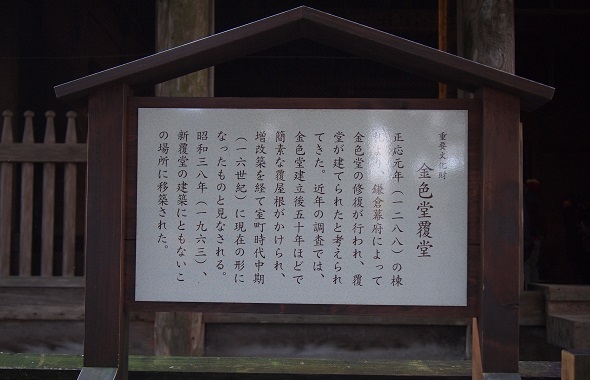 重要文化財
金色堂覆堂
正応元年（一二八八）の棟
札より、鎌倉幕府によって
金色堂の修復が行われ、覆
堂が建てられたと考えられ
てきた。近年の調査では、
金色堂建立後五十年ほどで
簡素な覆屋根がかけられ、
増改築を経て室町時代中期
（一六世紀）に現在の形に
なったものと見なされる。
昭和三八年（一九六三）、
新覆堂の建築にともないこ
の場所に移築された。